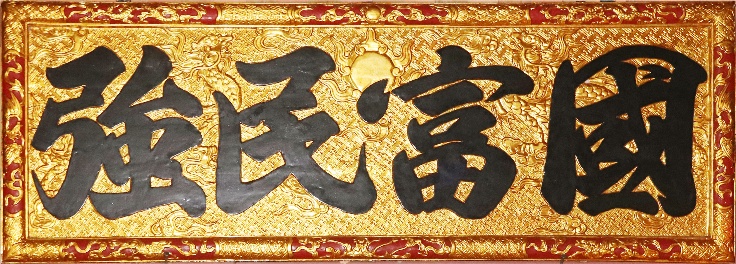 國富民強